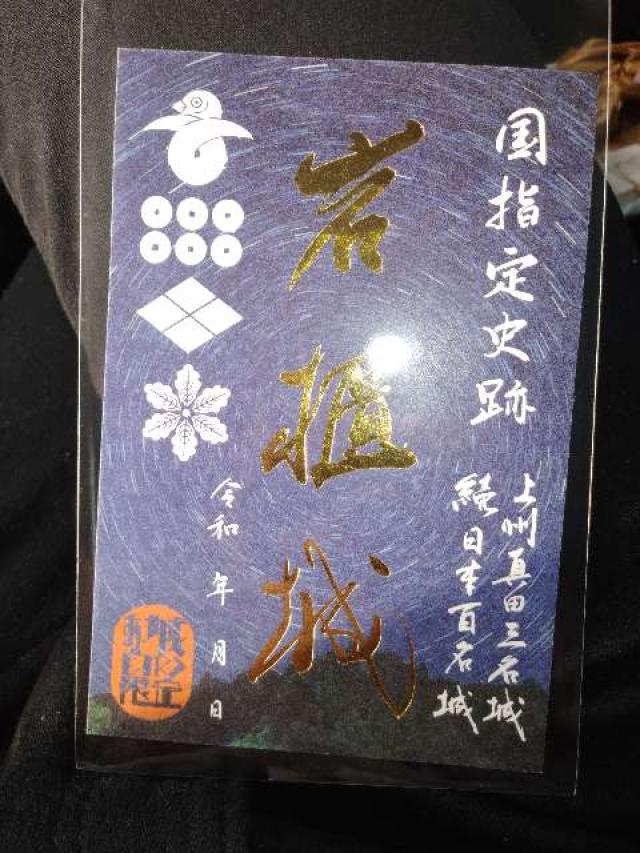 国指定史跡
上州真田三名城
続日本百名城
岩櫃城
令和 年 月 日